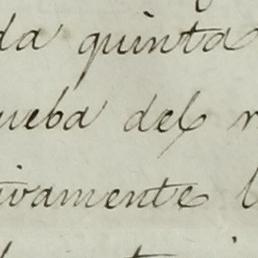 da quinta
ueba del
ivamente